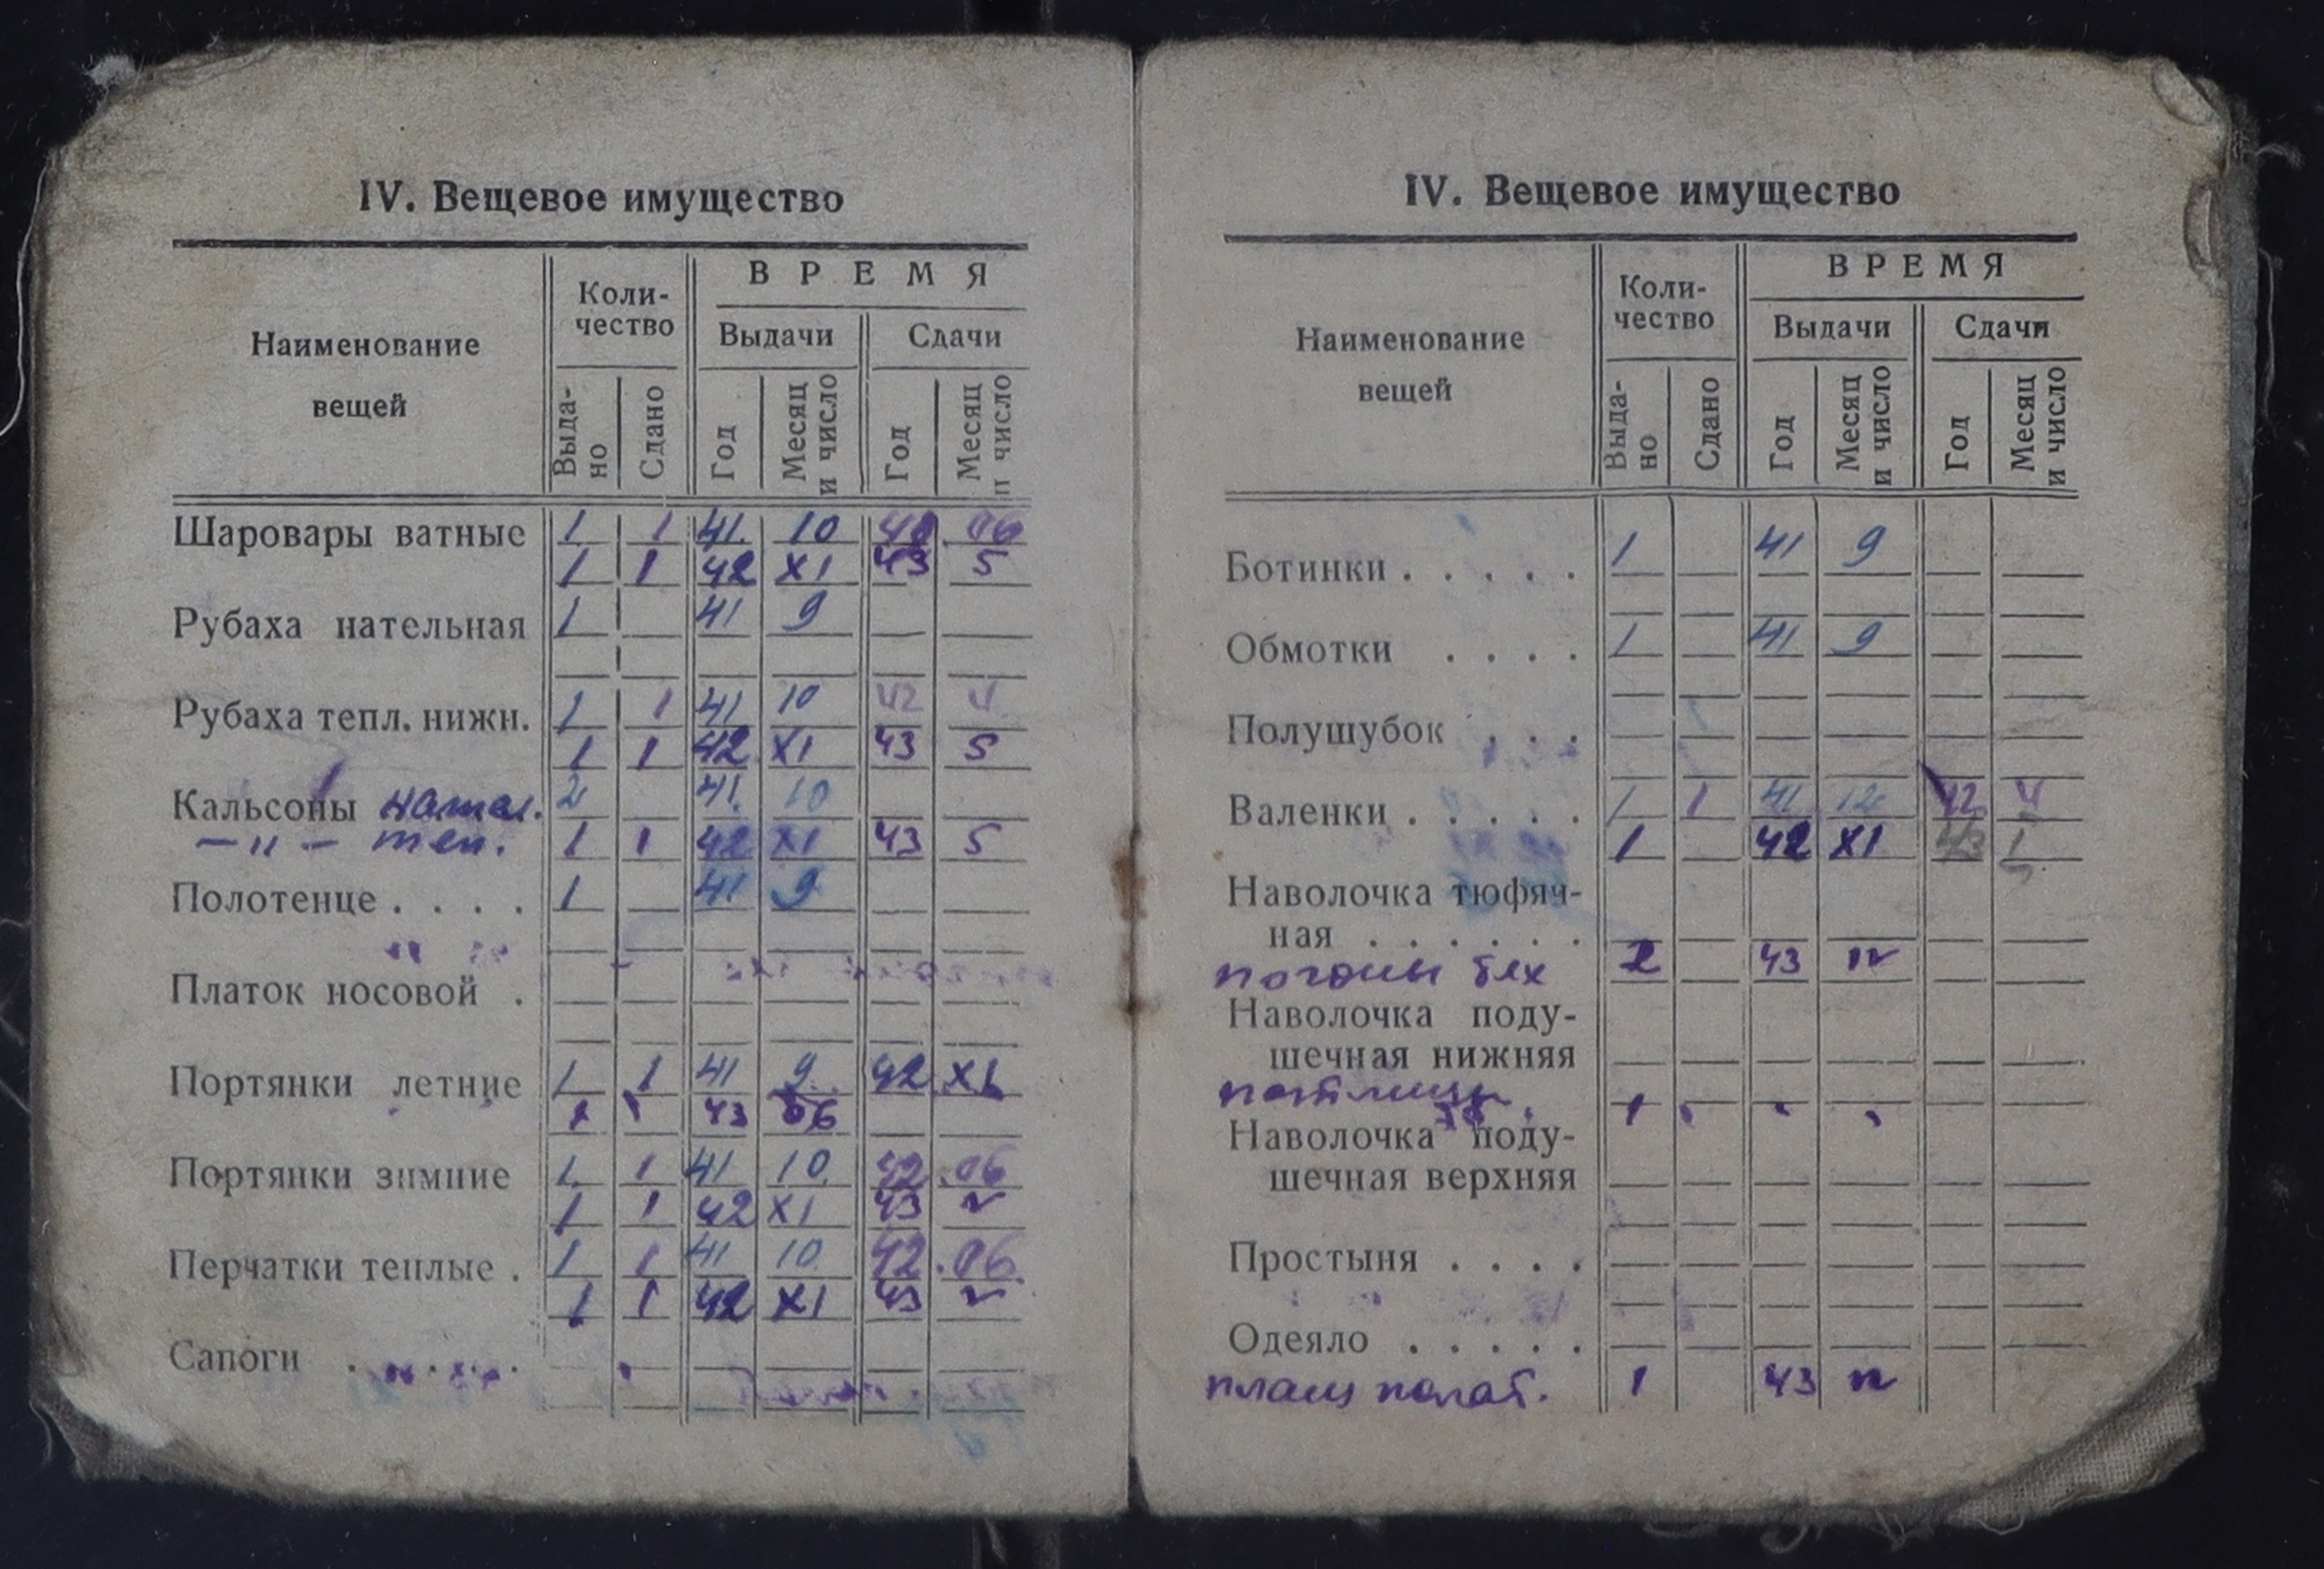 IV. Вещевое имущество
Наименование вещей
Коли-
чество
ВРЕМЯ
Выдачи
Сдачи
Выда-
но
Сдано
Год
Месяц
и число
Год
Месяц
и число
Шаровары ватные 1 1 41. 10 42 06
1 1 42 XI 43 5
Рубаха нательная 1 41 9
Рубаха тепл. нижн. 1 1 41 10 42 4
1 1 42 XI 43 5
Кальсоны нател. 2 41. 10
— " — теп. 1 1 42 XI 43 5
Полотенце . . . . 1 41 9
Платок носовой .
Портянки летние 1 1 41 9 42 XI
1 43 06
Портянки зимние 1 1 41 10. 42.06
1 1 42 XI 43
Перчатки теплые . 1 1 41 10 42.06.
1 1 42 XI 43
Сапоги . . . . .
IV. Вещевое имущество
Наименование вещей
Коли-
чество
ВРЕМЯ
Выдачи
Сдачи
Выда-
но
Сдано
Год
Месяц
и число
Год
Месяц
и число
Ботинки . . . . . 1 41 9
Обмотки . . . . 1 41 9
Полушубок . . .
Валенки . . . . . 1 1 41 12 42 4
1 42 XI 43
Наволочка тюфяч-
ная . . . . . .
погоны 2 43
Наволочка поду-
шечная нижняя
петлицы 1
Наволочка поду-
шечная верхняя
Простыня . . . .
Одеяло . . . . .
плащ палат. 1 43